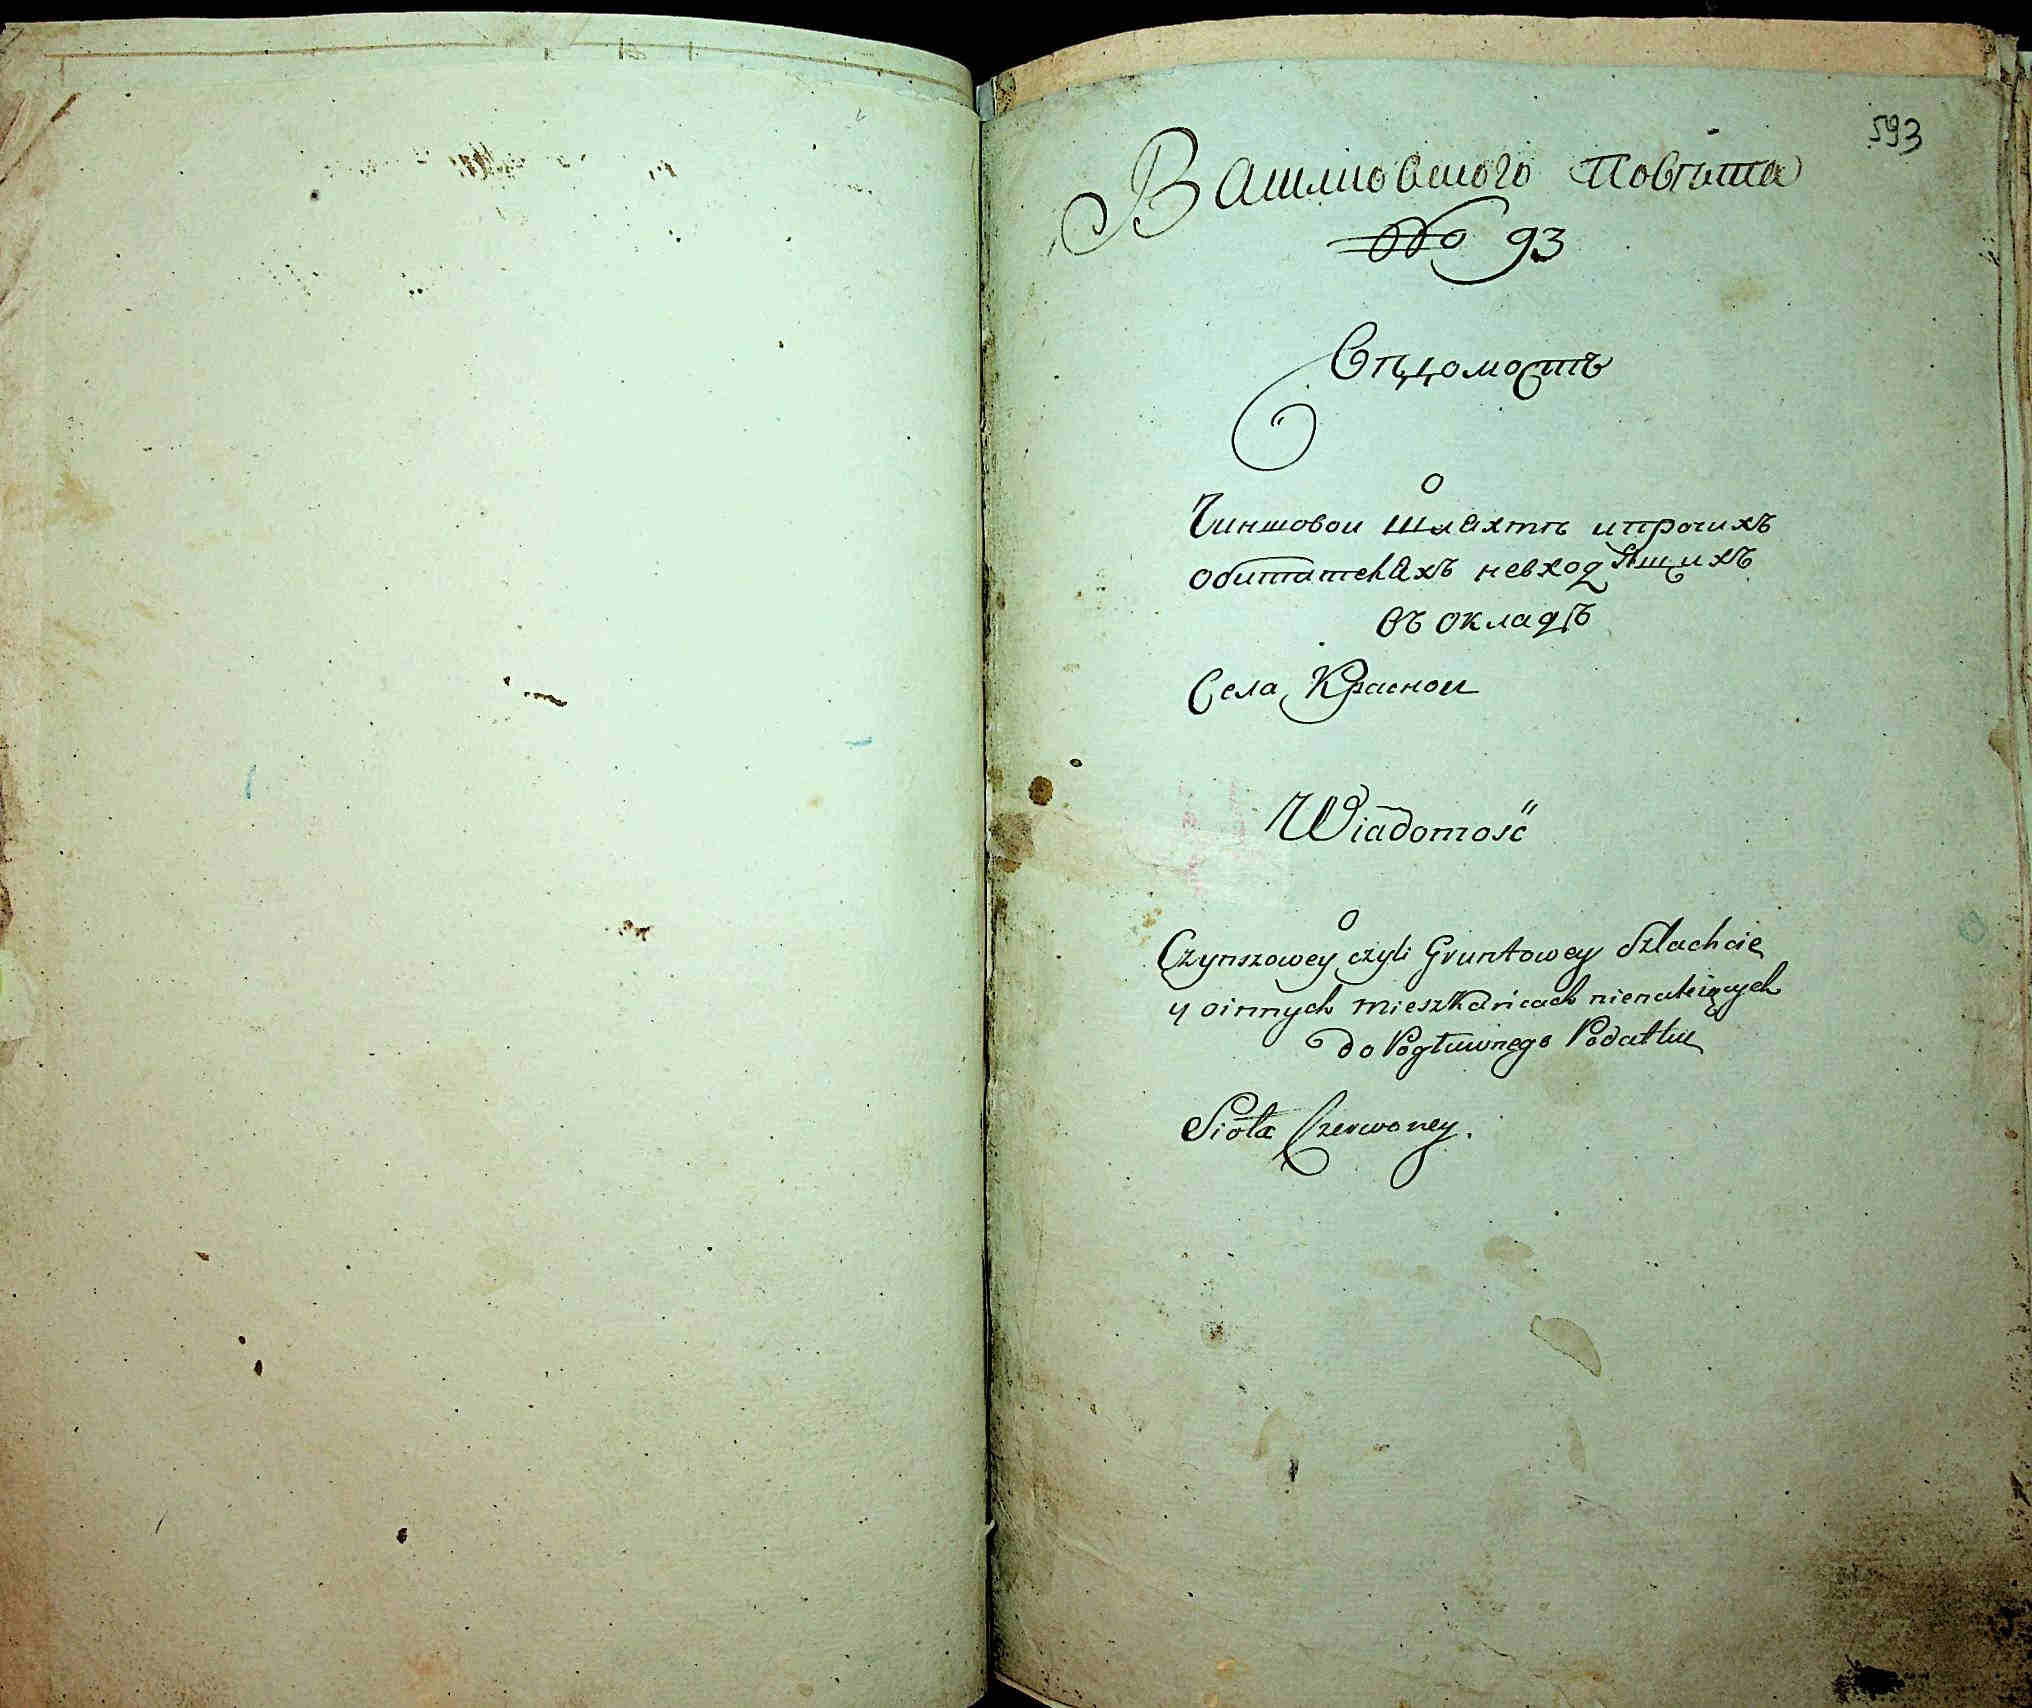 593
Вашковского повѣта
№ 93
Вѣдомость
О
Чиншовои шляхтѣ и прочихъ
обитателяхъ невходящихъ
въ окладъ
Села Краснои
Wiadomość
O
Czynszowey czyli Gruntowey Szlachcie
y oinnych mieszkańcach nienależących
do Pogłuwnego Podatku
Sioła Czerwoney.